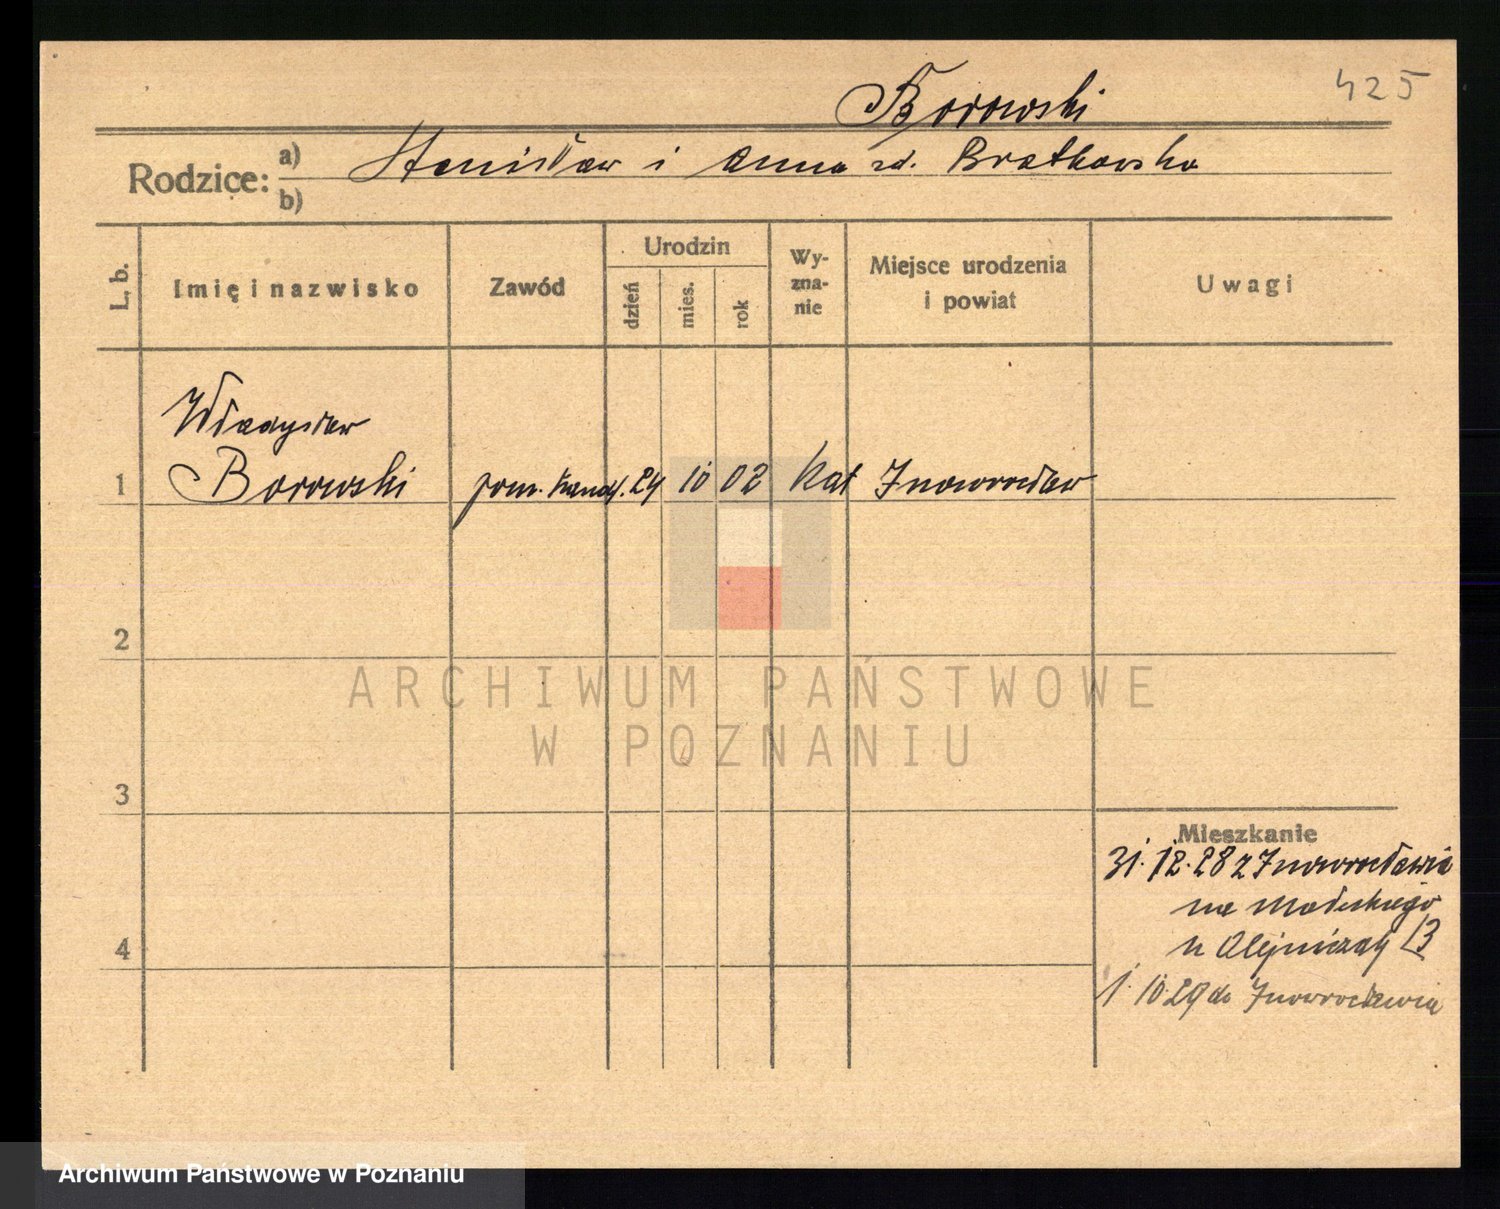 425
Borowski
Rodzice: a) Stanisław i Anna zd. Bratkowska
b)
L. b.
Imię i nazwisko
Zawód
Urodzin
dzień
mies.
rok
Wy-
zna-
nie
Miejsce urodzenia
i powiat
Uwagi
Władysław
1 Borowski pom. handl. 24 10 02 kat Inowrocław
2
3
4
Mieszkanie
31. 12. 28 z Inowrocławia
na
u Olejniczak 13
1. 10 29 do Inowrocławia
ARCHIWUM PAŃSTWOWE
W POZNANIU
Archiwum Państwowe w Poznaniu